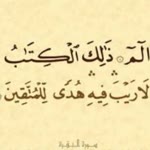 الٓمٓ ۝ ذَٰلِكَ ٱلْكِتَٰبُ
لَا رَيْبَ ۛ فِيهِ ۛ هُدًى لِّلْمُتَّقِينَ
سورة البقرة